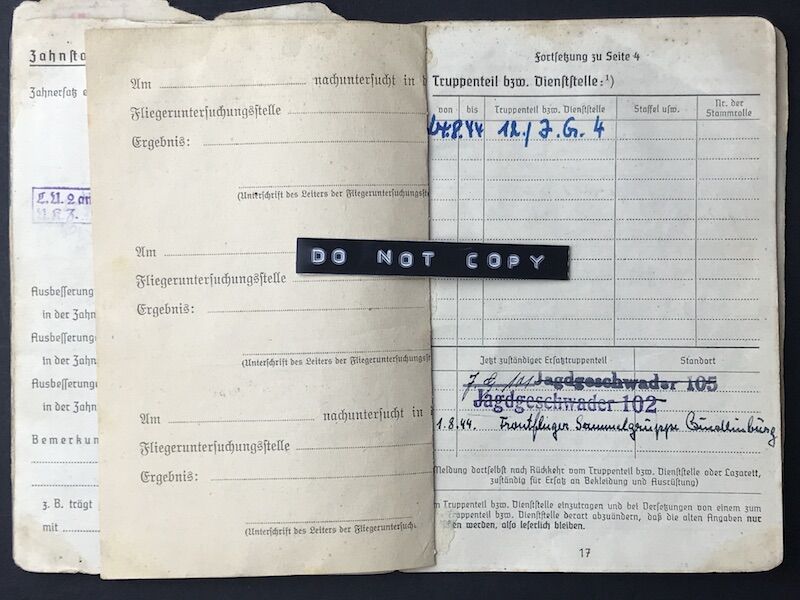 Zahnsta
Zahnersatz e
L.U. 2 an
Ausbesserung
in der Zahn
Ausbesserung
in der Zahn
Ausbesserung
in der Zahn
Bemerkun
z. B. trägt
mit
Am nachuntersucht in d
Fliegeruntersuchungsstelle
Ergebnis:
(Unterschrift des Leiters der Fliegeruntersuchungs
Am
Fliegeruntersuchungsstelle
Ergebnis:
(Unterschrift des Leiters der Fliegeruntersuchungss
Am nachuntersucht in
Fliegeruntersuchungsstelle
Ergebnis:
(Unterschrift des Leiters der Fliegeruntersuch
DO NOT COPY
Fortsetzung zu Seite 4
Truppenteil bzw. Dienststelle:¹)
von bis Truppenteil bzw. Dienststelle Staffel usw. Nr. der Stammrolle
8.44 12./J.Gr. 4
Jetzt zuständiger Ersatztruppenteil Standort
Jagdgeschwader 105
Jagdgeschwader 102
1.8.44. Frontflieger Sammelgruppe Quedlinburg
Meldung dortselbst nach Rückkehr vom Truppenteil bzw. Dienststelle oder Lazarett,
zuständig für Ersatz an Bekleidung und Ausrüstung)
m Truppenteil bzw. Dienststelle einzutragen und bei Versetzungen von einem zum
Truppenteil bzw. Dienststelle derart abzuändern, daß die alten Angaben nur
en werden, also leserlich bleiben.
17